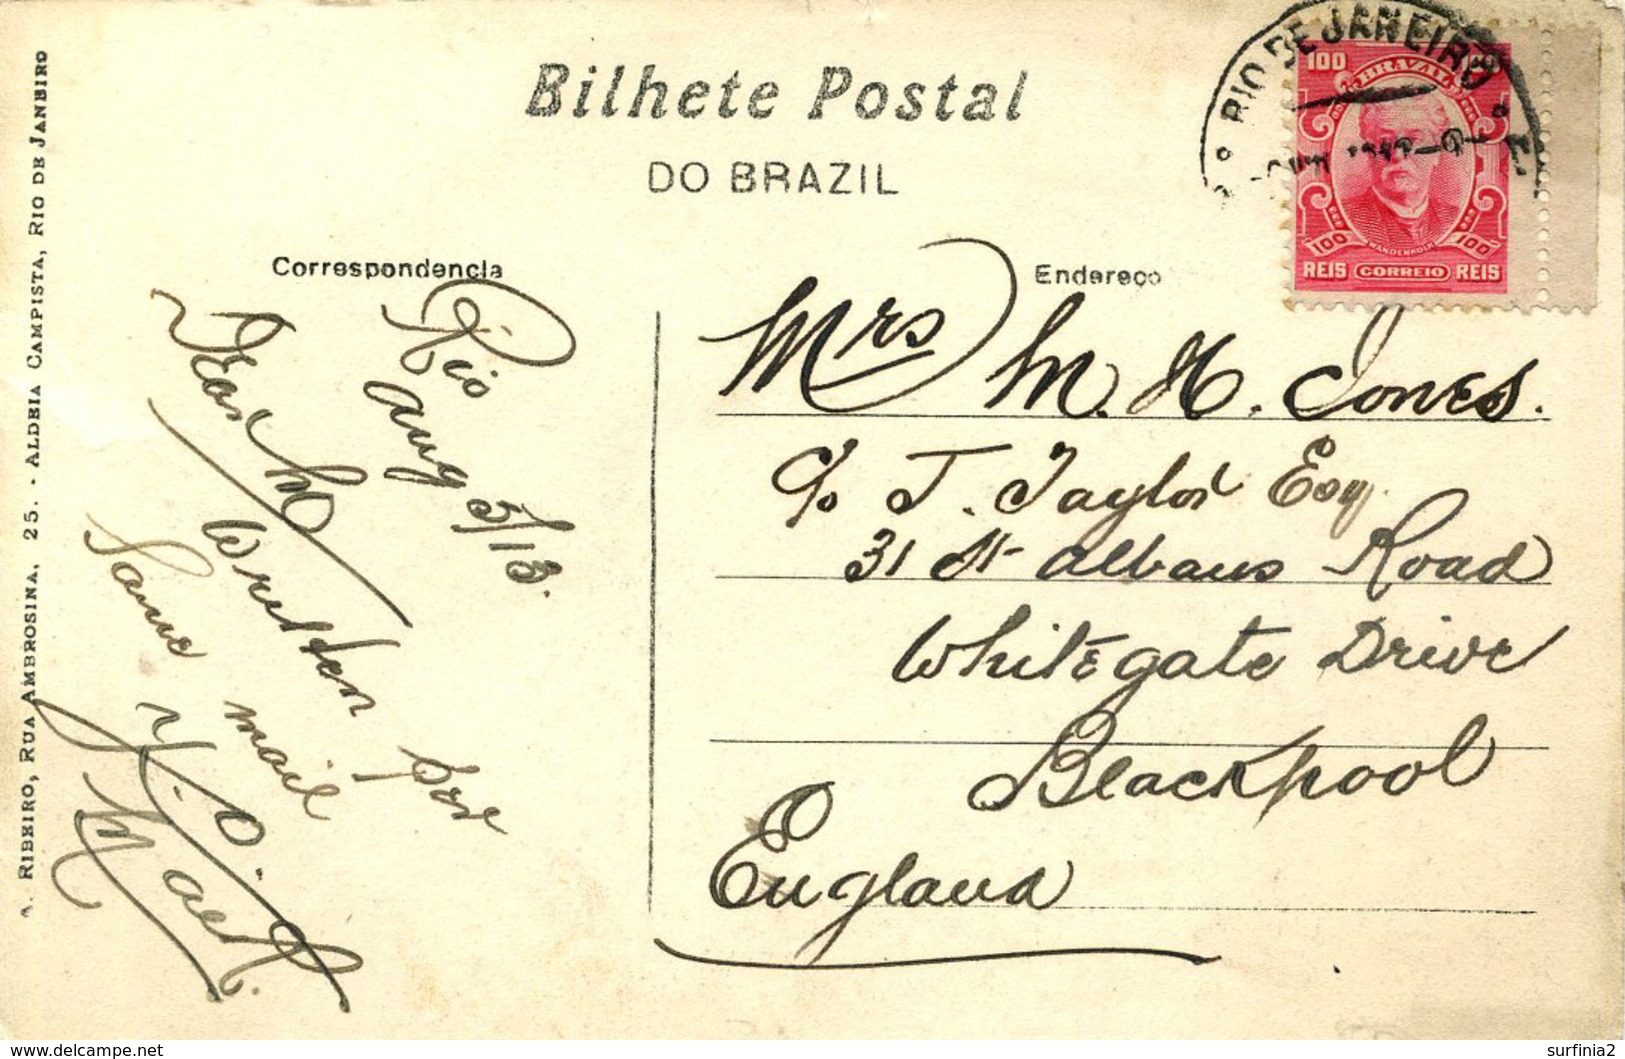 Bilhete Postal
DO BRAZIL
RIO DE JANEIRO
100
BRAZIL
WANDENKOLK
100 100
REIS CORREIO REIS
A. RIBEIRO, RUA AMBROSINA, 25. - ALDEIA CAMPISTA, RIO DE JANEIRO
Correspondencia
Rio
Aug 5/13.
Dear M
Written per
same mail
Endereço
Mrs M. H. Jones.
c/o J. Taylor Esq.
31 St Albans Road
Whitegate Drive
Blackpool
England
delcampe.net
surfinia2